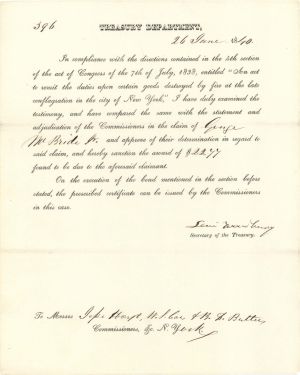 396
TREASURY DEPARTMENT,
26 June 1840.
In compliance with the directions contained in the 5th section
of the act of Congress of the 7th of July, 1838, entitled "An act
to remit the duties upon certain goods destroyed by fire at the late
conflagration in the city of New York," I have duly examined the
testimony, and have compared the same with the statement and
adjudication of the Commissioners in the claim of George
McBride Jr. and approve of their determination in regard to
said claim, and hereby sanction the award of $2277
found to be due to the aforesaid claimant.
On the execution of the bond mentioned in the section before
stated, the prescribed certificate can be issued by the Commissioners
in this case.
Levi Woodbury
Secretary of the Treasury.
To Messrs Hoyt, &
Commissioners, &c. N. York